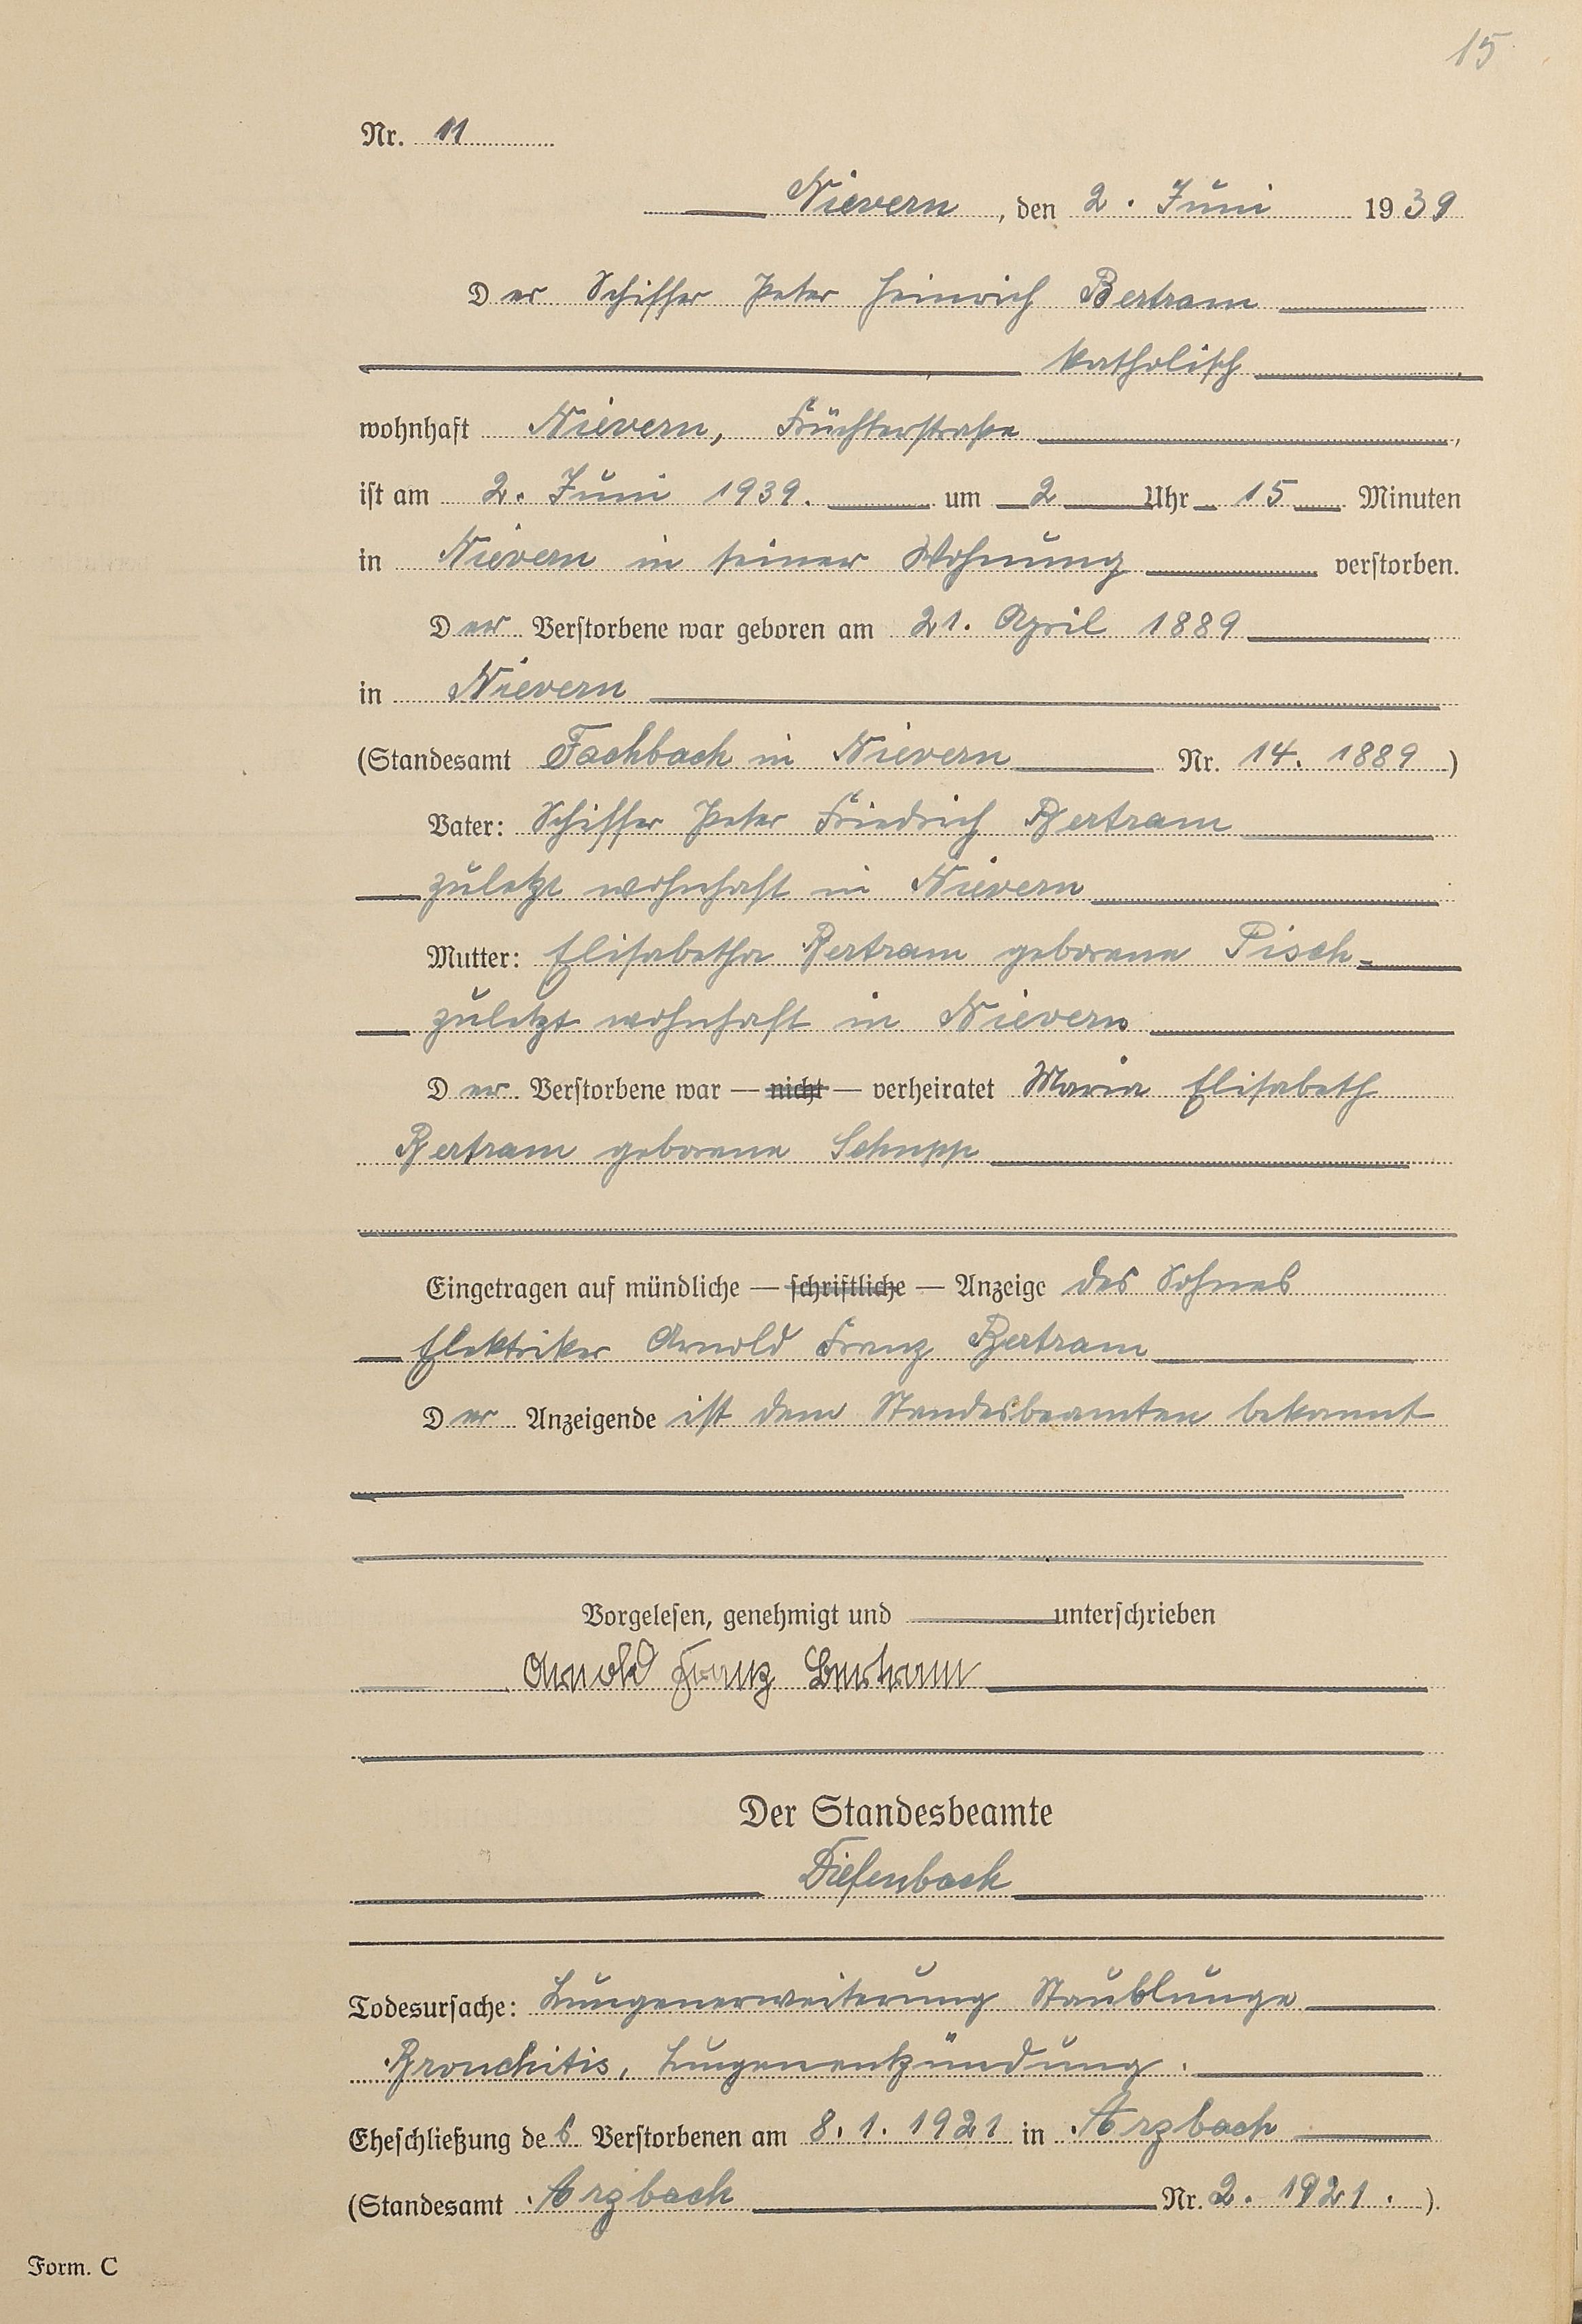 15
Nr. 11
Nievern, den 2. Juni 1939
Der Schiffer Peter Heinrich Bertram
katholisch
wohnhaft Nievern, Früchterstraße,
ist am 2. Juni 1939. um 2 Uhr 15 Minuten
in Nievern in seiner Wohnung verstorben.
Der Verstorbene war geboren am 21. April 1889
in Nievern
(Standesamt Fachbach in Nievern Nr. 14. 1889)
Vater: Schiffer Peter Friedrich Bertram
zuletzt wohnhaft in Nievern
Mutter: Elisabetha Bertram geborene Pisch
zuletzt wohnhaft in Nievern
Der Verstorbene war — nicht — verheiratet Maria Elisabeth
Bertram geborene Schupp
Eingetragen auf mündliche — schriftliche — Anzeige des Sohnes
Elektriker Arnold Franz Bertram
Der Anzeigende ist dem Standesbeamten bekannt
Vorgelesen, genehmigt und unterschrieben
Arnold Franz Bertram
Der Standesbeamte
Diefenbach
Todesursache: Lungenerweiterung Staublunge
Bronchitis, Lungenentzündung.
Eheschließung des Verstorbenen am 8. 1. 1921 in Arzbach
(Standesamt Arzbach Nr. 2. 1921.).
Form. C